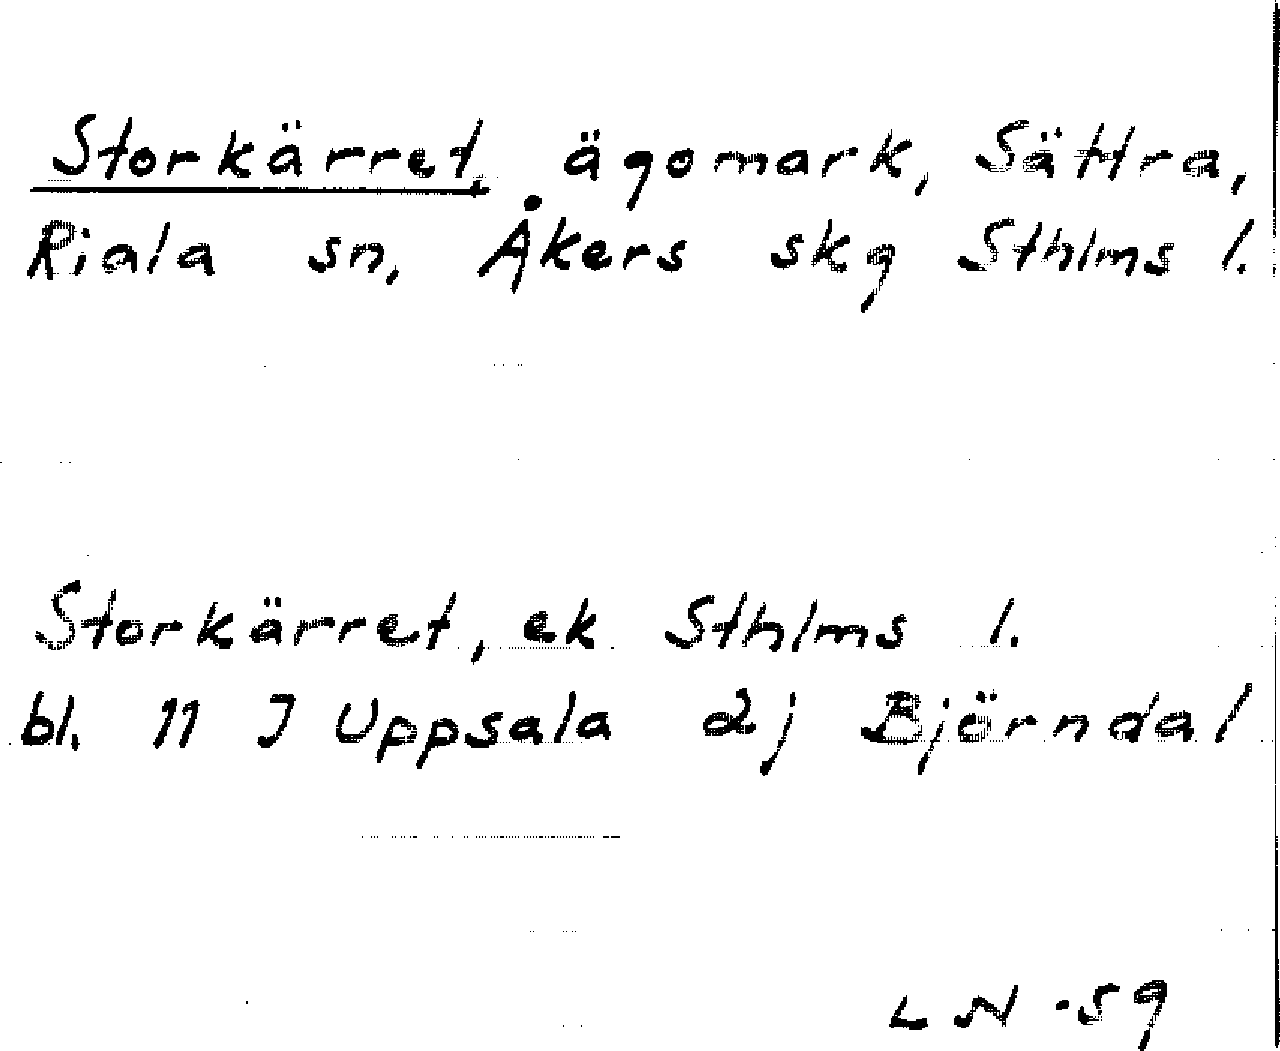 Storkärret, ägomark, Sättra,
Riala sn, Åkers skg Sthlms l.
Storkärret, ek Sthlms l.
bl. 11 J Uppsala 2j Björndal
LN -59